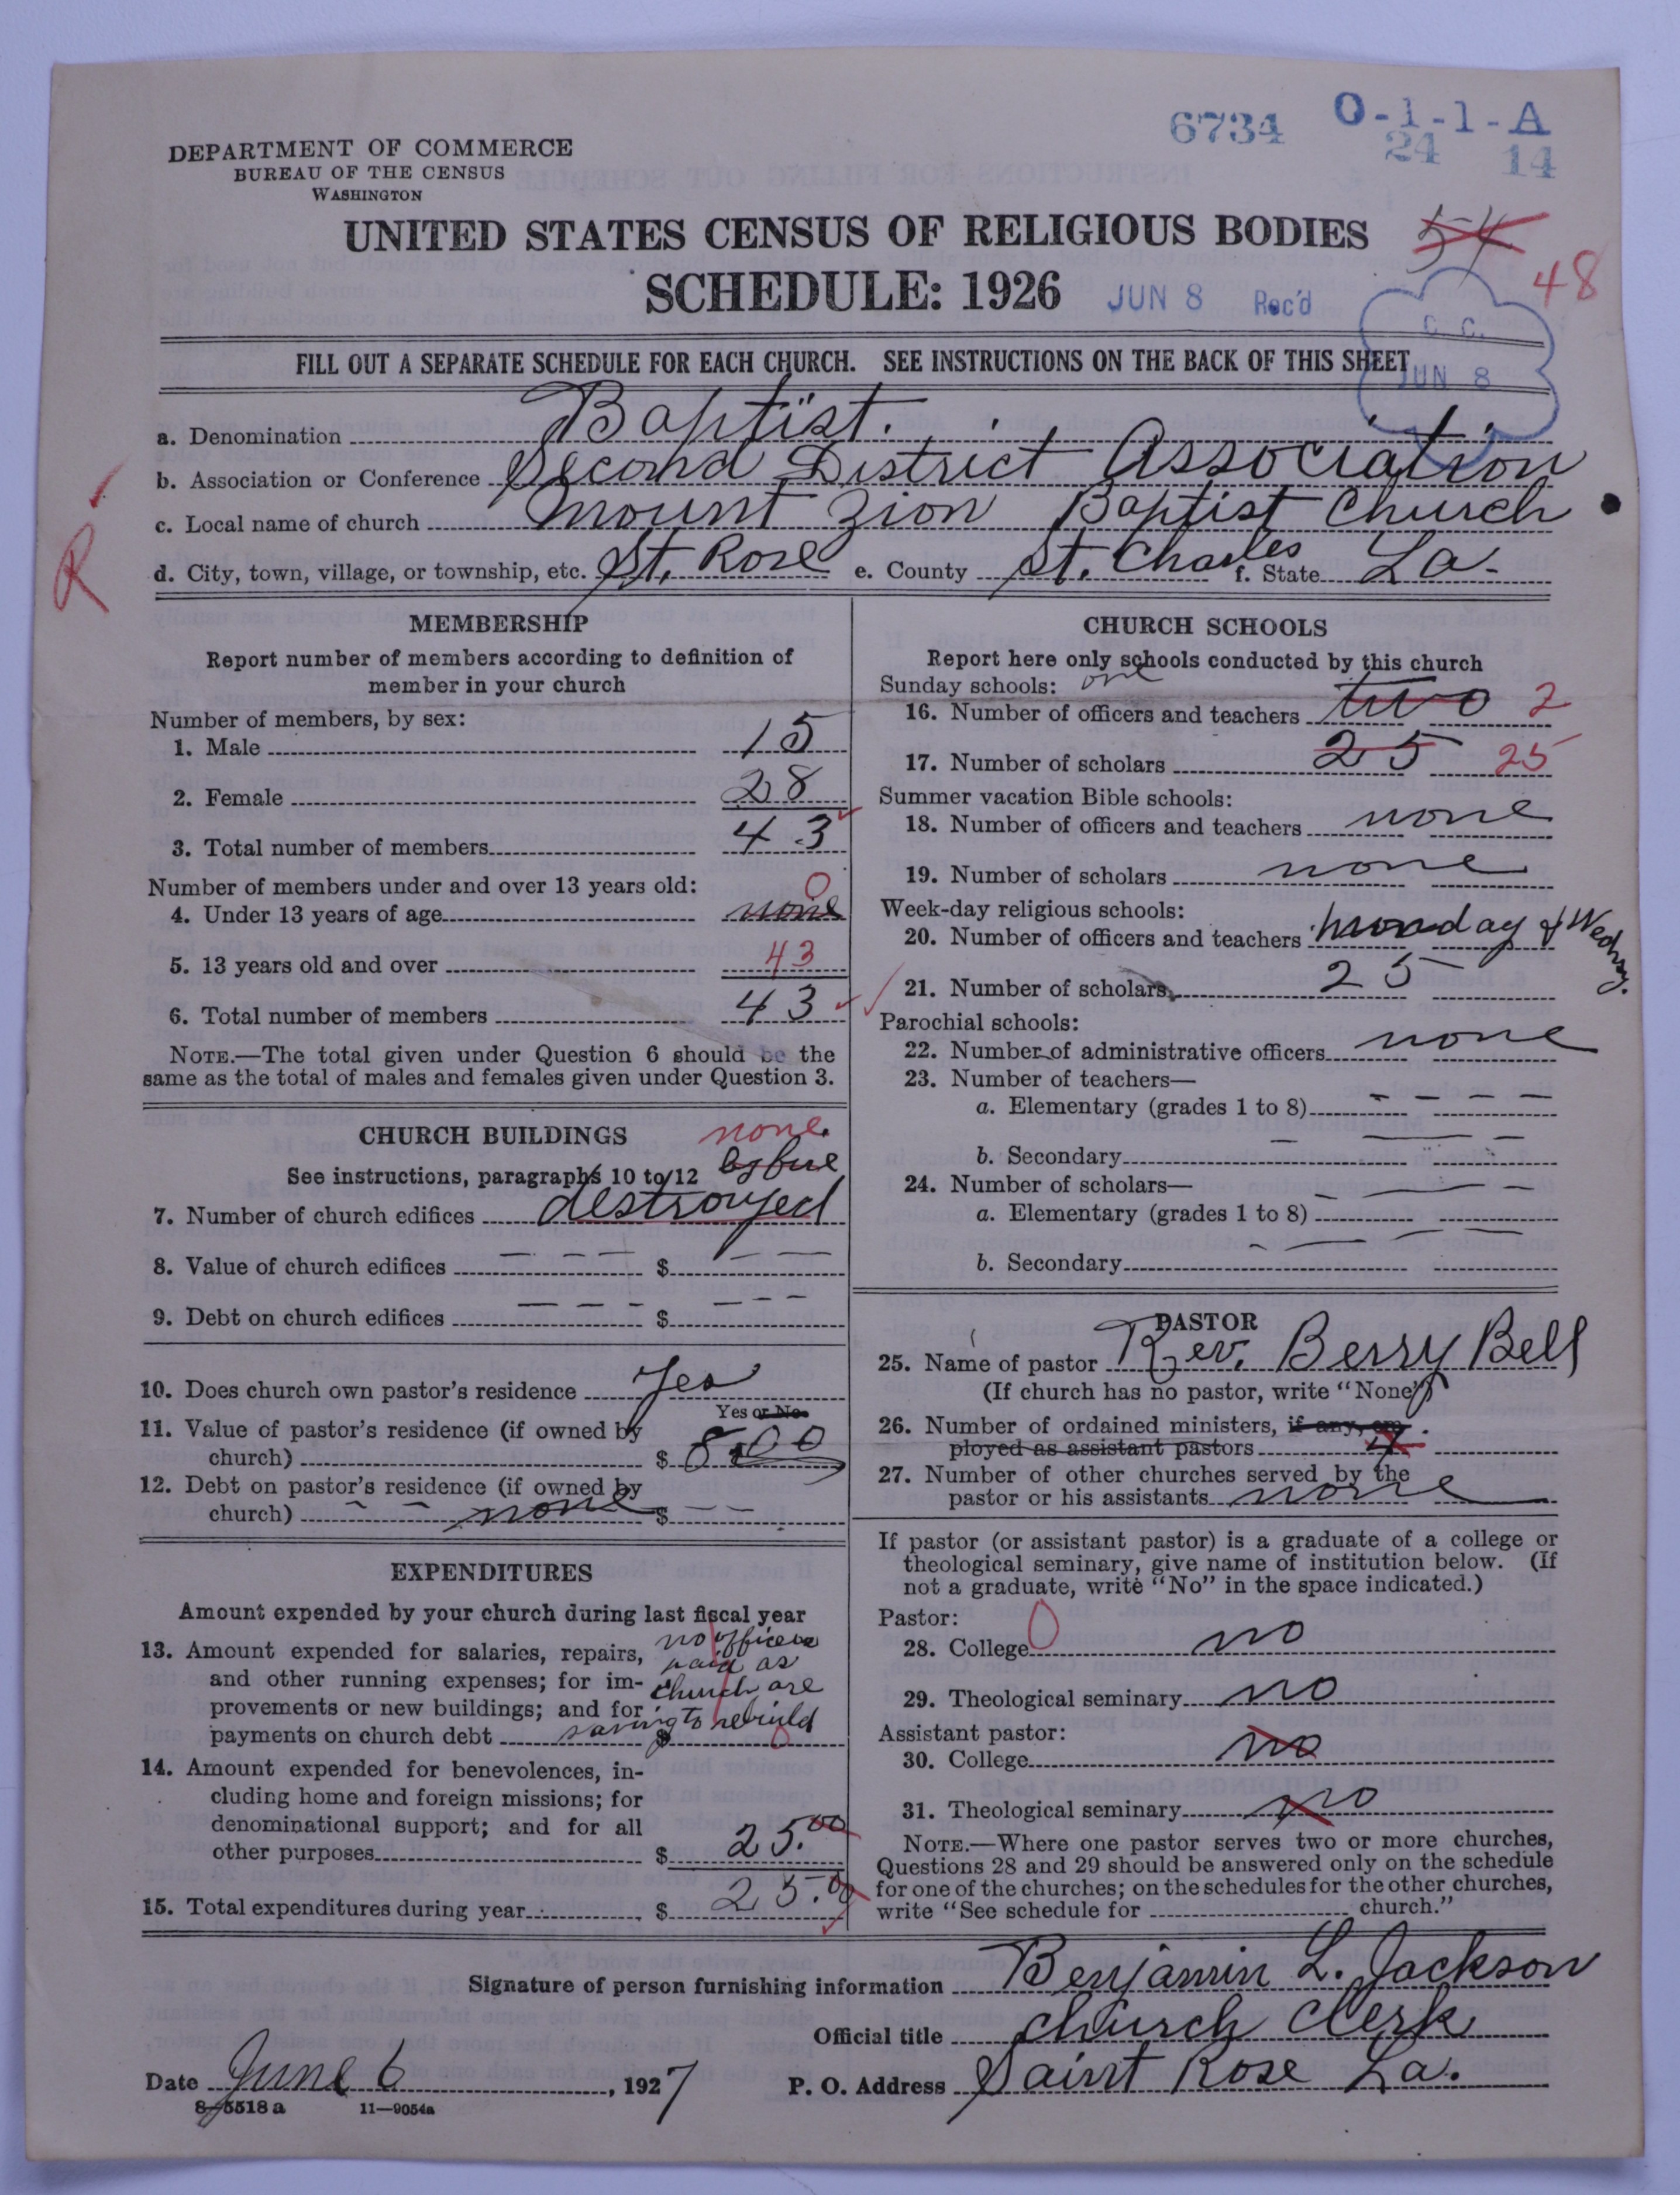 6734 O-1-1-A
24 14
DEPARTMENT OF COMMERCE
BUREAU OF THE CENSUS
WASHINGTON
UNITED STATES CENSUS OF RELIGIOUS BODIES
54
48
SCHEDULE: 1926 JUN 8 Rec'd
C. C.
JUN 8
FILL OUT A SEPARATE SCHEDULE FOR EACH CHURCH. SEE INSTRUCTIONS ON THE BACK OF THIS SHEET
a. Denomination Baptist.
b. Association or Conference Second District Association
c. Local name of church Mount Zion Baptist Church
R
d. City, town, village, or township, etc. St. Rose e. County St. Charles f. State La.
MEMBERSHIP
Report number of members according to definition of
member in your church
Number of members, by sex:
1. Male 15
2. Female 28
3. Total number of members 43
Number of members under and over 13 years old: 0
4. Under 13 years of age none
5. 13 years old and over 43
6. Total number of members 43
NOTE.—The total given under Question 6 should be the
same as the total of males and females given under Question 3.
CHURCH BUILDINGS none
See instructions, paragraphs 10 to 12 by fire
7. Number of church edifices destroyed
8. Value of church edifices $
9. Debt on church edifices $
10. Does church own pastor's residence Yes
Yes or No
11. Value of pastor's residence (if owned by
church) $ 800
12. Debt on pastor's residence (if owned by
church) none $
EXPENDITURES
Amount expended by your church during last fiscal year
13. Amount expended for salaries, repairs, no officers
and other running expenses; for im- paid as
provements or new buildings; and for church are
payments on church debt saving to rebuild $ 0
14. Amount expended for benevolences, in-
cluding home and foreign missions; for
denominational support; and for all
other purposes $ 25.00
15. Total expenditures during year $ 25.00
CHURCH SCHOOLS
Report here only schools conducted by this church
Sunday schools: one
16. Number of officers and teachers two 2
17. Number of scholars 25 25
Summer vacation Bible schools:
18. Number of officers and teachers none
19. Number of scholars none
Week-day religious schools:
20. Number of officers and teachers monday & Wednsy.
21. Number of scholars 25
Parochial schools:
22. Number of administrative officers none
23. Number of teachers—
a. Elementary (grades 1 to 8)
b. Secondary
24. Number of scholars—
a. Elementary (grades 1 to 8)
b. Secondary
PASTOR
25. Name of pastor Rev. Berry Bell
(If church has no pastor, write "None")
26. Number of ordained ministers, if any, em-
ployed as assistant pastors
27. Number of other churches served by the
pastor or his assistants none
If pastor (or assistant pastor) is a graduate of a college or
theological seminary, give name of institution below. (If
not a graduate, write "No" in the space indicated.)
Pastor: 0
28. College no
29. Theological seminary no
Assistant pastor:
30. College no
31. Theological seminary no
NOTE.—Where one pastor serves two or more churches,
Questions 28 and 29 should be answered only on the schedule
for one of the churches; on the schedules for the other churches,
write "See schedule for church."
Signature of person furnishing information Benjamin L. Jackson
Official title Church Clerk
Date June 6, 1927 P. O. Address Saint Rose La.
8-5518 a 11—9054a